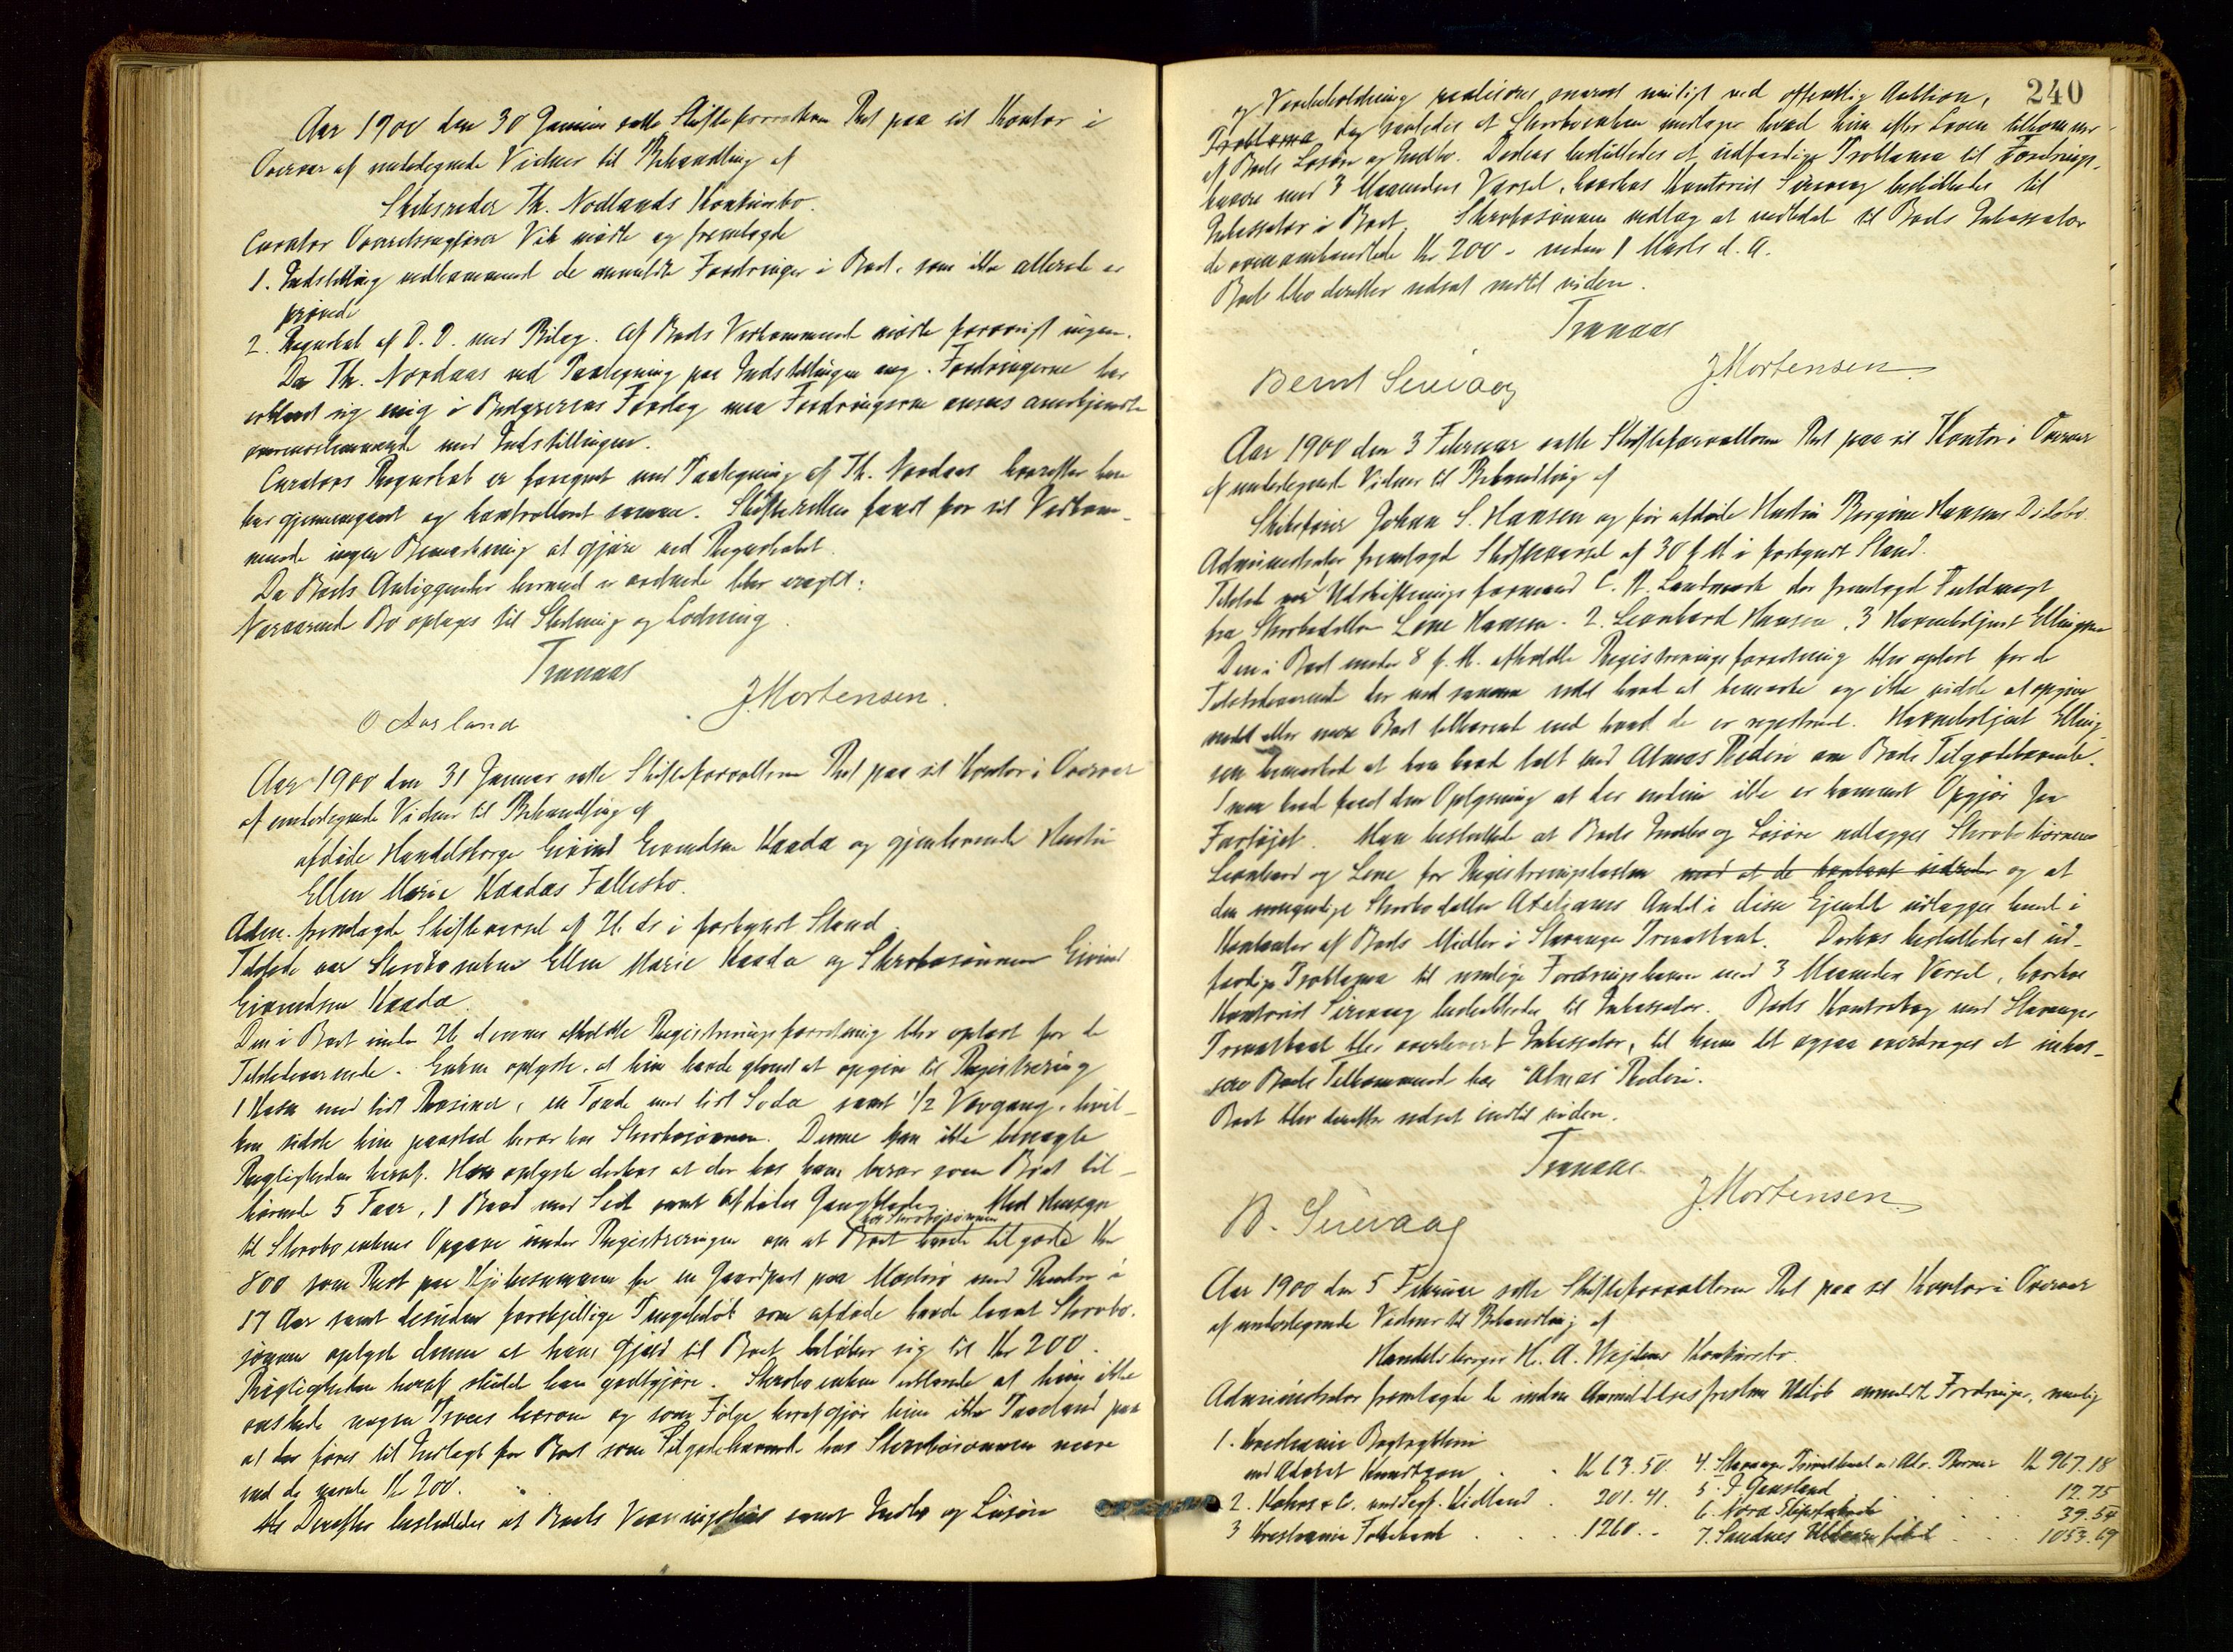 Aar 1900 den 30 Januar satte Skifteforvalteren Ret paa sit Kontor i
Overvær af undertegnede Vidner til Behandling af
Skibsreder Th. Nodlands Konkursbo.
Curator Overretssagfører Vik mødte og fremlagde
1. Indstilling vedkommende de anmeldte Fordringer i Boet, som ikke allerede er
prøvede
2. Regnskab af D. D. med Bilag. Af Boets Vedkommende mødte forøvrigt ingen.
Da Th. Nordaas ved Paategning paa Indstillingen ang. Fordringerne har
erklæret sig enig i Bestyrerens Forslag maa Fordringerne ansees anerkjendte
overensstemmende med Indstillingen.
Curators Regnskab er forsynet med Paategning af Th. Nordaas hvorefter han
har gjennemgaaet og kontrolleret samme. Skifteretten fandt for sit Vedkom-
mende ingen Bemærkning at gjøre ved Regnskabet.
Da Boets Anliggender hermed er ordnede blev eragtet:
Nærværende Bo optages til Slutning og Lodning.
Tranaas
J. Mortensen.
O Aasland
Aar 1900 den 31 Januar satte Skifteforvalteren Ret paa sit Kontor i Overvær
af undertegnede Vidner til Behandling af
afdøde Handelsborger Eivind Eivindsen Haada og gjenlevende Hustru
Ellen Marie Haadas Fællesbo.
Adm. fremlagde Skiftevarsel af 26 ds i forkyndt Stand.
Tilstede var Stervboenken Ellen Marie Haada og Stervbosønnen Eivind
Eivindsen Haada.
Den i Boet under 26 dennes afholdte Registreringsforretning blev oplæst for de
Tilstedeværende. Enken oplyste, at hun havde glemt at opgive til Registrering
1 Kasse med lidt Rosiner, en Tønde med lidt Soda samt 1/2 Vorgang, hvil-
ke sidste hun paastod beror hos Stervbosønnen. Denne kan ikke benægte
Rigtigheden heraf. Han oplyste derhos at der hos ham beror som Boet til-
hørende 5 Faar, 1 Baad med Seil samt Afdødes Gangklæder. Med Hensyn
til Stervboenkens Opgave under Registreringen om at Boet hos Stervbosønnen havde tilgode Kr
800 som Rest paa Kjøbesummen for en Gaardpart paa Mosterø med Renter i
17 Aar samt desuden forskjellige Pengebeløb som afdøde havde laant Stervbo-
sønnen oplyste denne at hans Gjæld til Boet beløber sig til Kr 200.
Rigtigheden heraf skulde han godtgjøre. Stervboenken erklærede at hun ikke
ønskede nogen Proces herom og som Følge heraf gjør hun ikke Paastand paa
at der føres til Indtægt for Boet som Tilgodehavende hos Stervbosønnen mere
end de nævnte Kr 200.
Derefter besluttedes at Boets Varer samt Indbo og Løsøre
240
og Varebeholdning realiseres snarest muligt ved offentlig Auktion,
Proklama dog saaledes at Stervboenken modtager hvad hun efter Loven tilkommer
af Boets Løsøre og Indbo. Derhos besluttedes at udfærdige Proklama til Fordrings-
havere med 3 Maaneders Varsel, hvorhos Kontorist Sirevaag beskikkedes til
Inkassator i Boet. Stervbosønnen vedtog at indbetale til Boets Inkassator
de ovenomhandlede Kr 200 - inden 1 Marts d. A.
Boet blev derefter udsat indtil videre.
Tranaas
J. Mortensen.
Bernt Sirevaag
Aar 1900 den 3 Februar satte Skifteforvalteren Ret paa sit Kontor i Overvær
af undertegnede Vidner til Behandling af
Skibsfører Johan S. Hansen og før afdøde Hustru Bergine Hansens Dødsbo.
Administrator fremlagde Skiftevarsel af 30 f. M. i forkyndt Stand.
Tilstede var 1 Udskiftningsformand C. A. Landmark der fremlagde Fuldmagt
fra Stervbodatter Lene Hansen. 2. Leonhard Hansen, 3 Havnebetjent Ellingsen
Den i Boet under 8 f. M. afholdte Registreringsforretning blev oplæst for de
Tilstedeværende der ved samme intet havde at bemærke og ikke vidste at opgive
andet eller mere Boet tilhørende end hvad der er registreret. Havnebetjent Elling-
sen bemærkede at han havde talt med Almas Rederi om Boets Tilgodehavende.
Man havde faaet den Oplysning at der endnu ikke er kommet Opgjør fra
Fartøjet. Man besluttede at Boets Indbo og Løsøre udlægges Stervbobørnene
Leonhard og Lene for Registreringstaxten mod at de kontant udreder og at
den umyndige Stervbodatter Andel i disse Ejendele udlægges hende i
Kontanter af Boets Midler i Stavanger Privatbank. Derhos besluttedes at ud-
færdige Proklama til mulige Fordringshavere med 3 Maaneders Varsel, hvorhos
Kontorist Sirevaag beskikkedes til Inkassator. Boets Kontrabog med Stavanger
Privatbank blev overleveret Inkassator, til hvem det ogsaa overdrages at inkas-
sere Boets Tilkommende hos "Almas" Rederi.
Boet blev derefter udsat indtil videre.
Tranaas
J. Mortensen.
B. Sirevaag
Aar 1900 den 5 Februar satte Skifteforvalteren Ret paa sit Kontor i Overvær
af undertegnede Vidner til Behandling af
Handelsborger H. A. Konkursbo.
Administrator fremlagde de inden Anmeldelsesfristens Udløb anmeldte Fordringer, nemlig
1. Kristiania Bogtrykkeri
ved Advokat Knudtzon . . Kr 63.50. 4. Stavanger Privatbank v. Adv. Kr 967.18
2. Kahrs & C. ved Sagf. Kidland . 201.41. 5. P. Gausland . . . 12.75
3 Kristiania Folkebank . . . 1260. - 6. Nora . . . 39.54
7. Sandnes . . . 1053.69